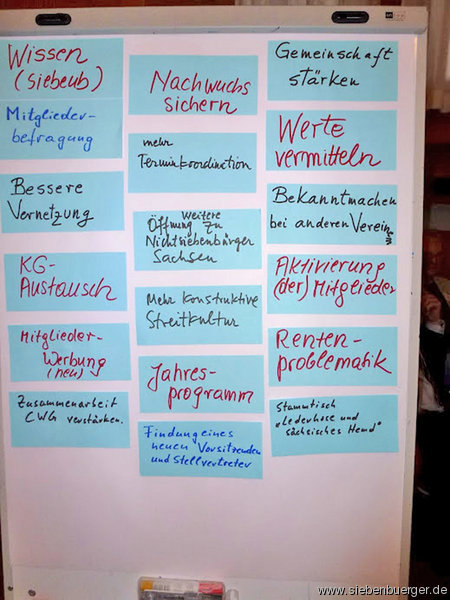 Wissen
(siebenb)
Mitglieder-
befragung
Bessere
Vernetzung
KG-
Austausch
Mitglieder-
Werbung
(neu)
Zusammenarbeit
CWG verstärken.
Nachwuchs
sichern
mehr
Terminkoordination
weitere
Öffnung zu
Nichtsiebenbürger
Sachsen
Mehr konstruktive
Streitkultur
Jahres-
programm
Findung eines
neuen Vorsitzenden
und Stellvertreter
Gemeinschaft
stärken
Werte
vermitteln
Bekanntmachen
bei anderen Vereinen
Aktivierung
(der) Mitglieder
Renten-
problematik
Stammtisch
"Lederhose und
sächsisches Hemd"
www.siebenbuerger.de